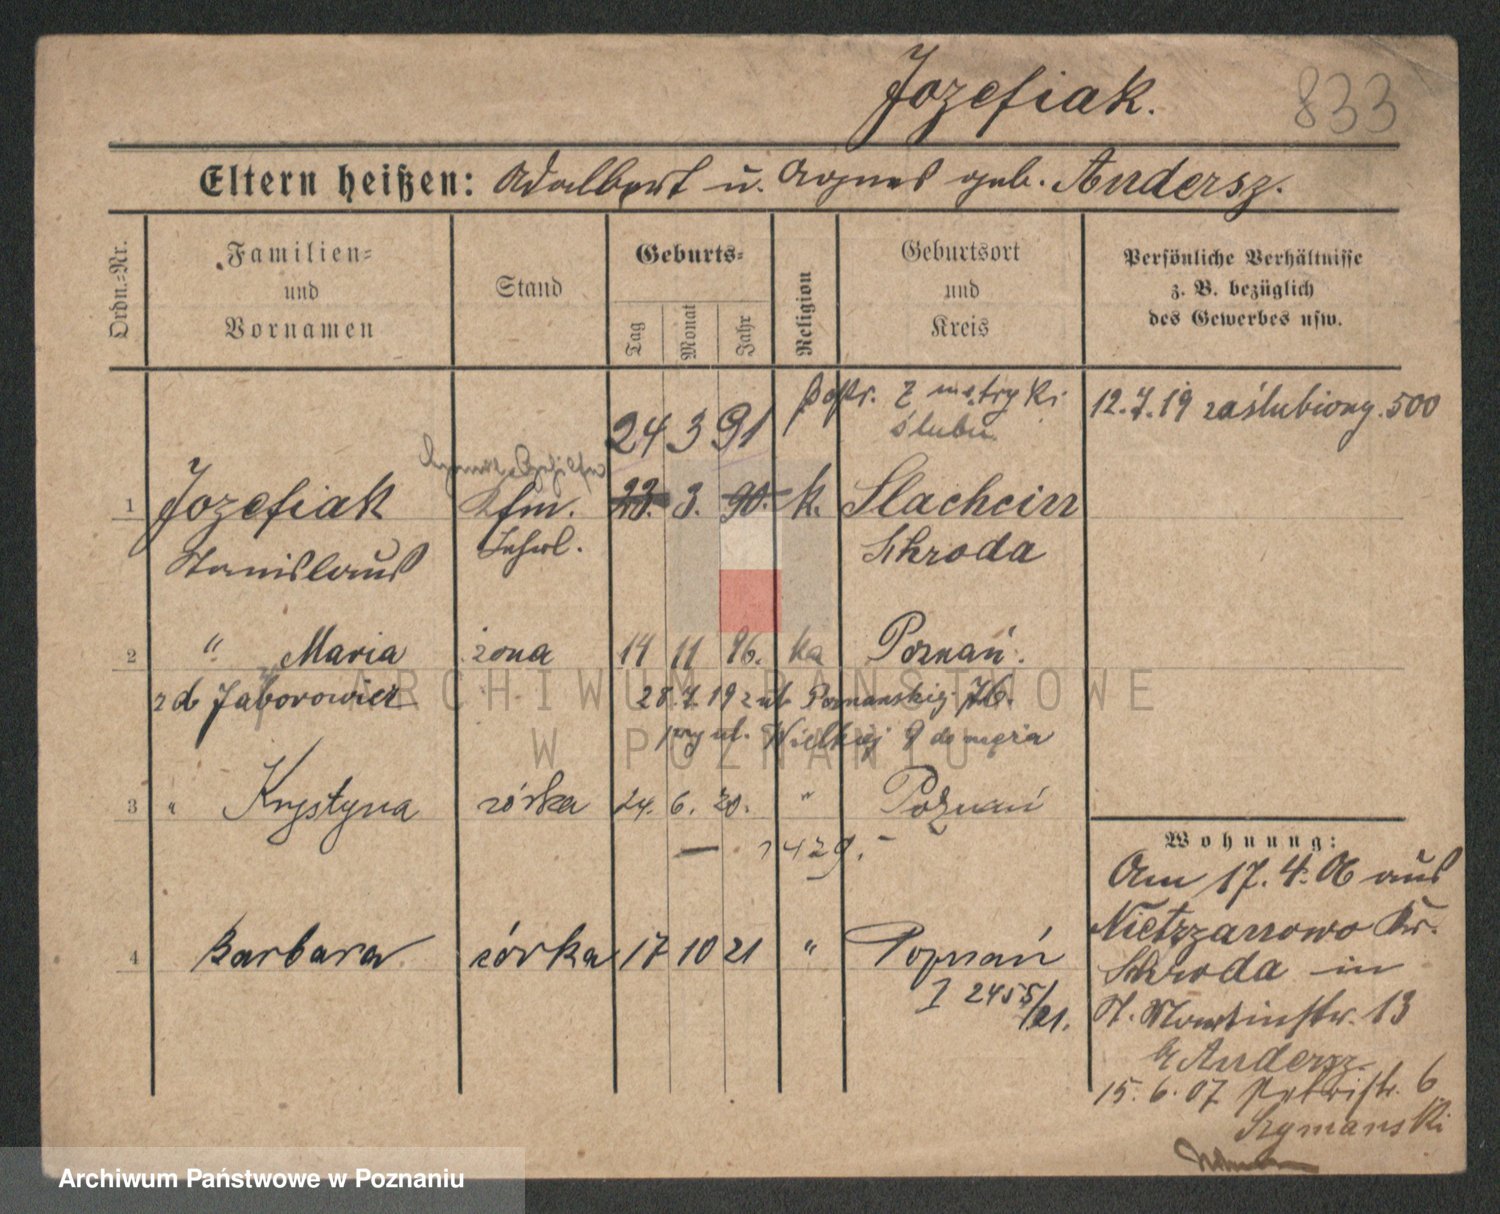 Jozefiak.
833
Eltern heißen: Adalbert u. Agnes geb. Andersz.
Ordn.-Nr.
Familien- und Vornamen
Stand
Geburts-
Tag
Monat
Jahr
Religion
Geburtsort und Kreis
Persönliche Verhältnisse
z. B. bezüglich
des Gewerbes usw.
popr. z metryki
ślubu
12.7.19 zaślubiony. 500
24 3 91
1 Jozefiak Kfm. 23. 3. 90. k. Slachcin
Stanislaus Lehrl. Schroda
2 " Maria żona 14 11 96. ka Poznań.
zd Jaborowicz 28.7.19 z ul. Poznańskiej 76.
przy ul. Wielkiej 9 do męża
3 " Krystyna córka 24. 6. 20. " Poznań
— 1429. –
4 Barbara córka 17 10 21 " Poznań
I 2455/21.
Wohnung:
Am 17.4.06 aus
Nietrzanowo Kr.
Schroda in
St. Martinstr. 13
b/ Andersz.
15.6.07 Petristr. 6
Szymanski
ARCHIWUM PAŃSTWOWE
W POZNANIU
Archiwum Państwowe w Poznaniu